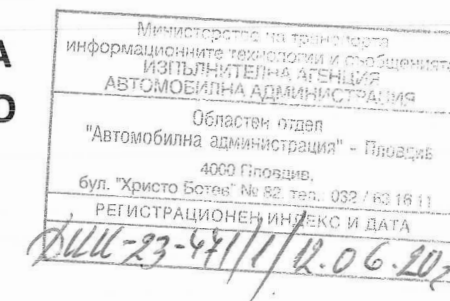 А
О
Министерство на транспорта
информационните технологии и съобщенията
ИЗПЪЛНИТЕЛНА АГЕНЦИЯ
АВТОМОБИЛНА АДМИНИСТРАЦИЯ
Областен отдел
"Автомобилна администрация" - Пловдив
4000 Пловдив,
бул. "Христо Ботев" № 82, тел.: 032 / 63 16 11
РЕГИСТРАЦИОНЕН ИНДЕКС И ДАТА
-23-471/1/12.06.20